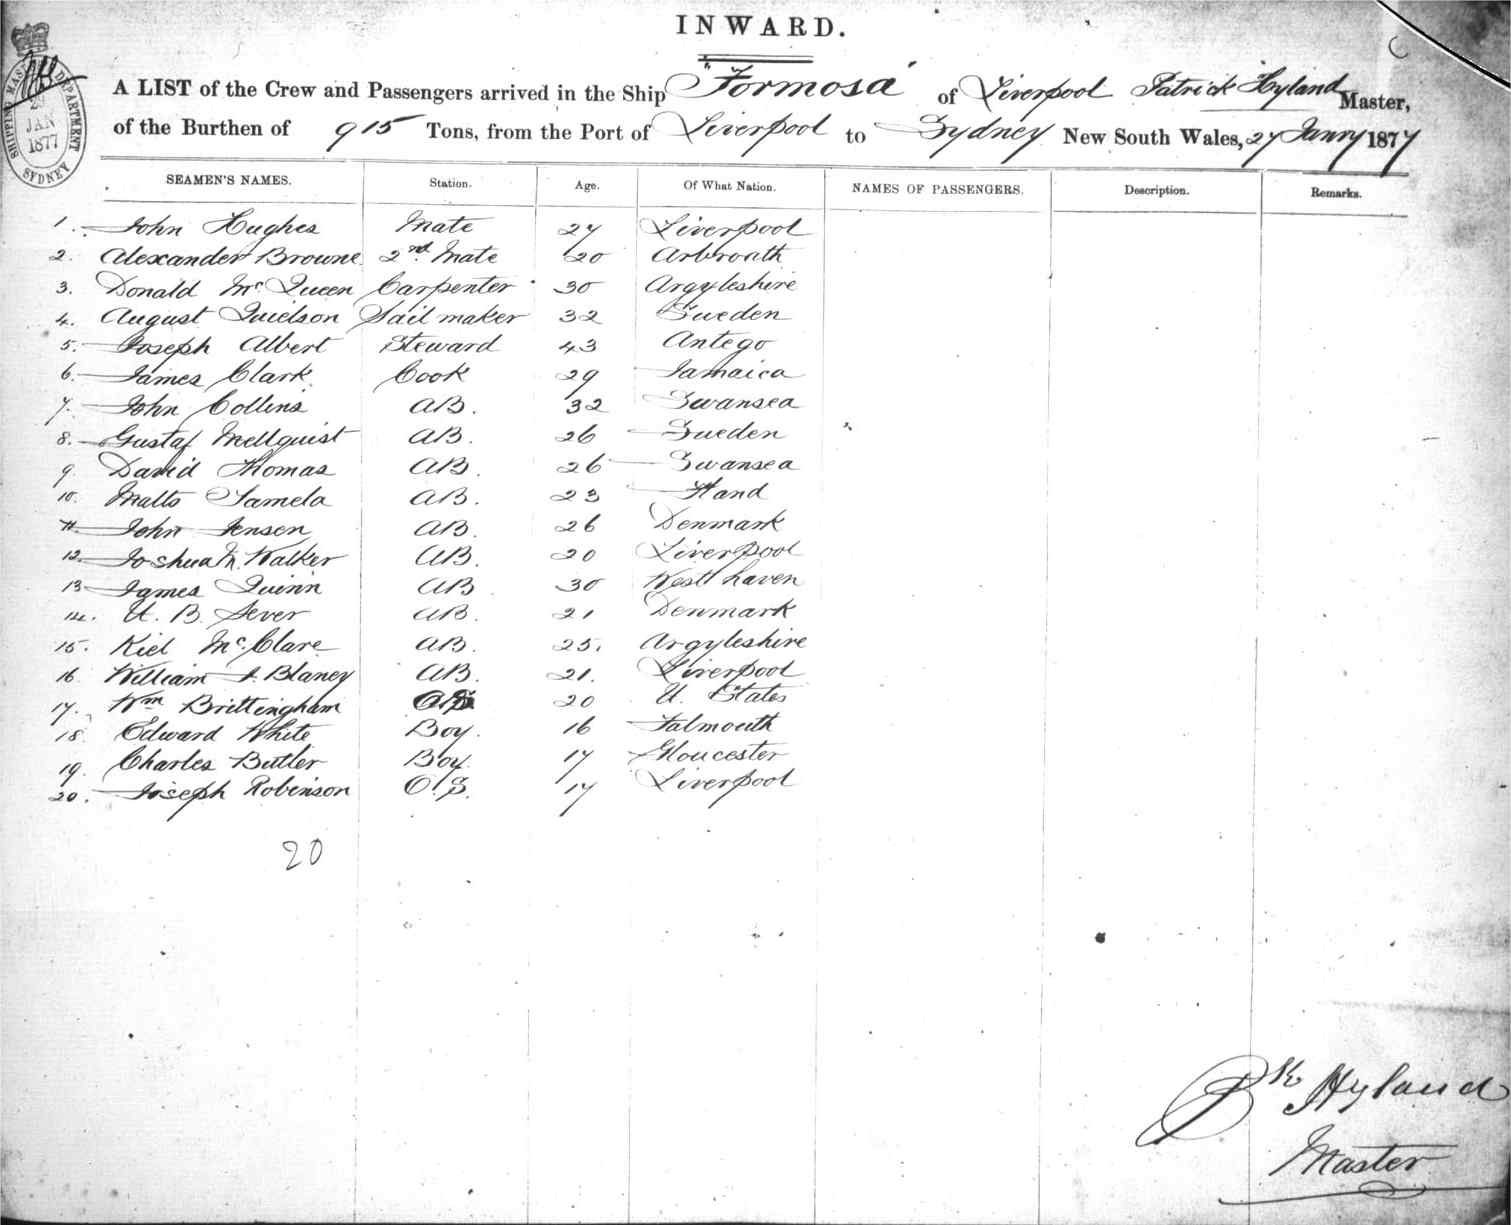 INWARD.
SHIPPING MASTER'S DEPARTMENT
29
JAN
1877
SYDNEY
A LIST of the Crew and Passengers arrived in the Ship "Formosa" of Liverpool Patrick Hyland Master,
of the Burthen of 915 Tons, from the Port of Liverpool to Sydney New South Wales, 27 Janry 1877
SEAMEN'S NAMES. Station. Age. Of What Nation. NAMES OF PASSENGERS. Description. Remarks.
1. John Hughes Mate 27 Liverpool
2. Alexander Browne 2nd Mate 20 Arbroath
3. Donald McQueen Carpenter 30 Argyleshire
4. August Sail maker 32 Sweden
5. Joseph Albert Steward 43 Antego
6. James Clark Cook 29 Jamaica
7. John Collins AB. 32 Swansea
8. Gustaf Mellquist AB. 26 Sweden
9. David Thomas AB. 26 Swansea
10. Matts Samela AB. 23
11. John Jensen AB. 26 Denmark
12. Joshua M. Walker AB. 20 Liverpool
13 James Quinn AB 30 West haven
14. B. Sever AB. 21 Denmark
15. Kiel McClare AB. 25. Argyleshire
16 William J. Blaney AB. 21. Liverpool
17. Wm Brittingham 20 U. States
18. Edward White Boy. 16 Falmouth
19. Charles Butler Boy. 17 Gloucester
20. Joseph Robinson O.S. 17 Liverpool
20
Pk Hyland
Master